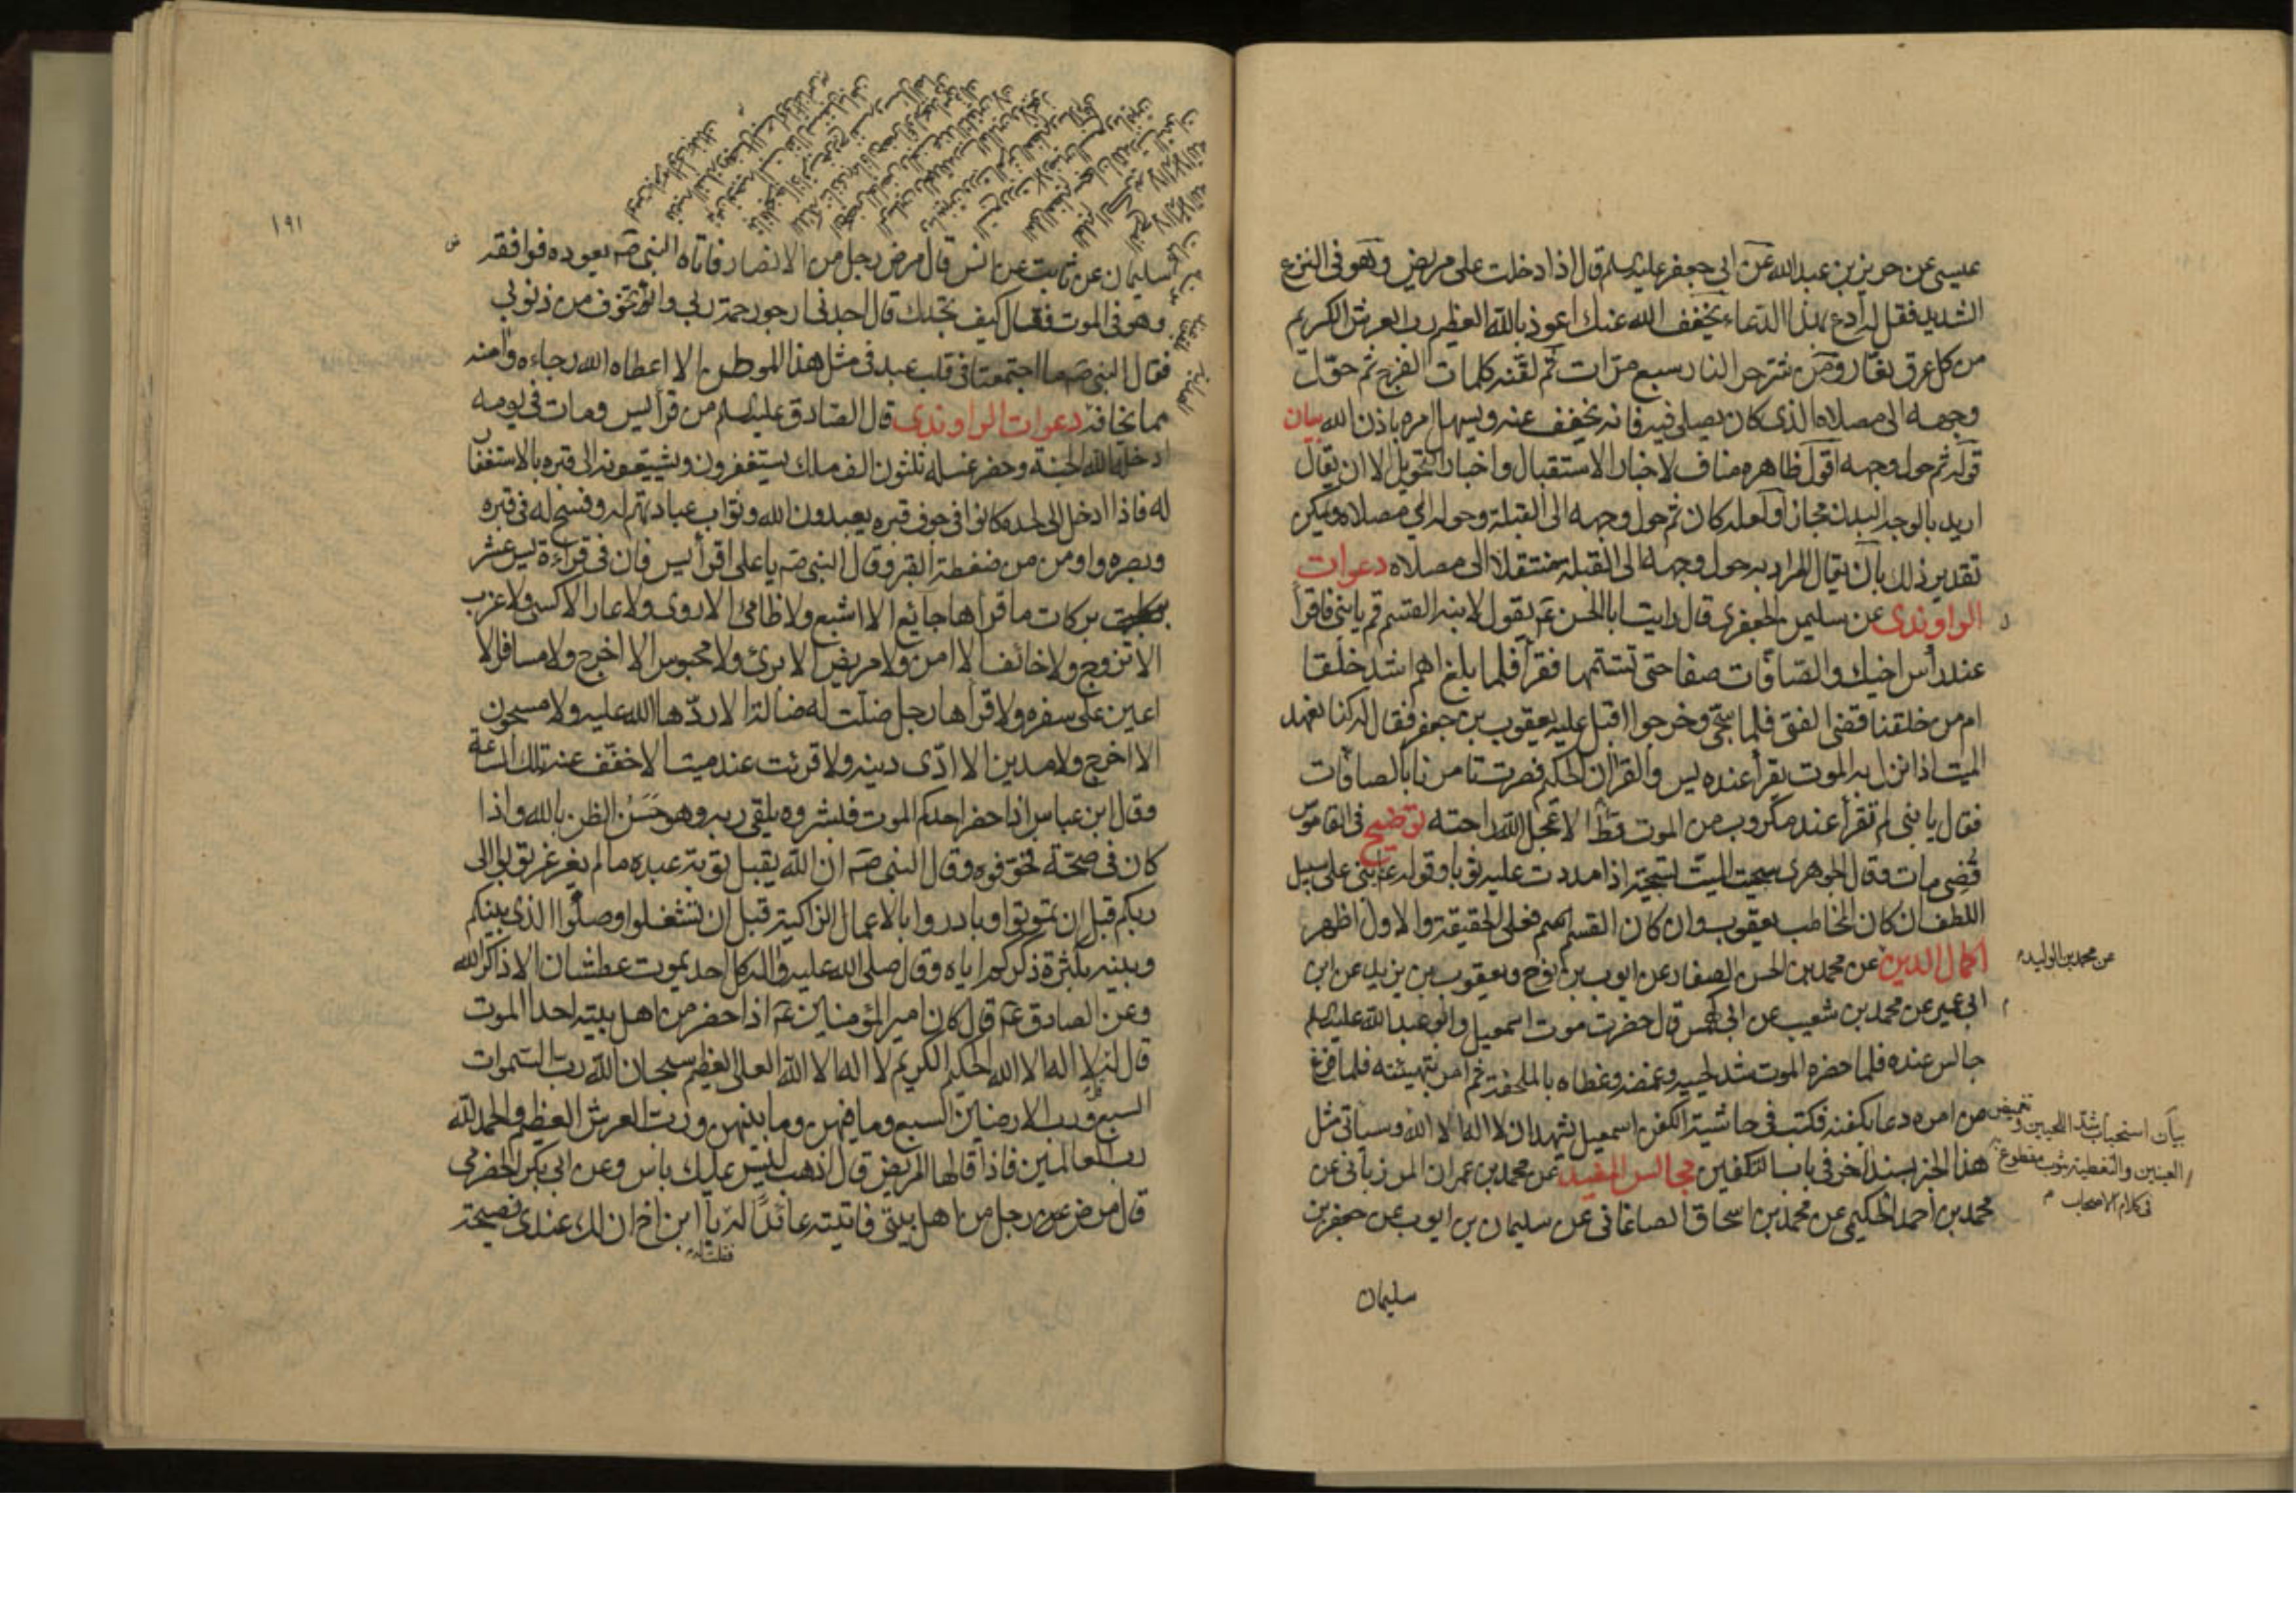 عيسى عن حريز بن عبد الله عن ابى جعفر عليه السلم قال اذا دخلت على مريض وهو فى النزع
الشديد فقل له ادع بهذا الدعاء يخفف الله عنك اعوذ بالله العظيم رب العرش الكريم
من كل عرق نفار ومن شر حر النار سبع مرات ثم لقنه كلمات الفرج ثم حوّل
وجهه الى مصلاه الذى كان يصلى فيه فانه يخفف عنه ويسهل امره باذن الله بيان
قوله ثم حول وجهه اقول ظاهره مناف لاخبار الاستقبال واخبار التحويل الا ان يقال
اريد بالوجه البدن مجازا ولعله كان ثم حول وجهه الى القبلة وحوله الى مصلاه ويمكن
تقدير ذلك بان يقال المراد به حول وجهه الى القبلة منتقلا الى مصلاه دعوات
الراوندى عن سليمن الجعفرى قال رايت ابا الحسن ع يقول لابنه القسم قم يا بنى فاقرأ
عند رأس اخيك والصافات صفا حتى تستتمها فقرأ فلما بلغ اهم اشد خلقا
ام من خلقنا قضى الفتى فلما سجّى وخرجوا اقبل عليه يعقوب بن جعفر فقال له كنا نعهد
الميت اذا نزل به الموت يقرأ عنده يس والقران الحكيم فصرت تامرنا بالصافات
فقال يا بنى لم تقرأ عند مكروب من الموت قطّ الا عجل الله راحته توضيح فى القاموس
قضى مات وقال الجوهرى سجيت الميت تسجية اذا مددت عليه ثوبا وقوله ع يا بنى على سبيل
اللطف ان كان المخاطب يعقوب وان كان القسم فعلى الحقيقة والاول اظهر
اكمال الدين عن محمد بن الحسن الصفار عن ايوب بن نوح ويعقوب بن يزيد عن ابن
عن محمد بن الوليد
ابى عمير عن محمد بن شعيب عن ابى كهمس قال حضرت موت اسمعيل وابو عبد الله عليه السلم
جالس عنده فلما حضره الموت شد لحييه وغمضه وغطاه بالملحفة ثم امر بتهيئته فلما فرغ
من امره دعا بكفنه فكتب فى حاشية الكفن اسمعيل يشهد ان لا اله الا الله وسياتى مثل
بيان استحباب شد اللحيين وتغميض
العينين والتغطية بثوب مقطوع به
فى كلام الاصحاب م
هذا الخبر بسند اخر فى باب التكفين مجالس المفيد عن محمد بن عمران المرزبانى عن
محمد بن احمد الحكيمى عن محمد بن اسحاق الصاغانى عن سليمان بن ايوب عن جعفر بن
سليمان
١٩١
سليمان عن ثابت عن انس قال مرض رجل من الانصار فاتاه النبى ص يعوده فوافقه
وهو فى الموت فقال كيف تجدك قال اجدنى ارجو رحمة ربى واتخوف من ذنوبى
فقال النبى ص ما اجتمعتا فى قلب عبد فى مثل هذا الموطن الا اعطاه الله رجاءه وآمنه
مما يخافه دعوات الراوندى قال الصادق عليه السلم من قرأ يس ومات فى يومه
ادخله الله الجنة وحضر غسله ثلثون الف ملك يستغفرون ويشيعونه الى قبره بالاستغفار
له فاذا ادخل الى لحده كانوا فى جوف قبره يعبدون الله وثواب عبادتهم له وفسح له فى قبره
وبصره واومن من ضغطة القبر وقال النبى ص يا على اقرأ يس فان فى قراءة يس عشر
بركات ما قرأها جائع الا اشبع ولا ظامئ الا روى ولا عار الا كسى ولا عزب
الا تزوج ولا خائف الا امن ولا مريض الا برئ ولا محبوس الا اخرج ولا مسافر الا
اعين على سفره ولا قرأها رجل ضلّت له ضالة الا ردّها الله عليه ولا مسجون
الا اخرج ولا مدين الا ادّى دينه ولا قرئت عند ميت الا خفّف عنه تلك الساعة
وقال ابن عباس اذا حضر احدكم الموت فبشروه يلقى ربه وهو حسن الظن بالله واذا
كان فى صحّة فخوّفوه وقال النبى ص ان الله يقبل توبة عبده ما لم يغرغر توبوا الى
ربكم قبل ان تموتوا وبادروا بالاعمال الزاكية قبل ان تشتغلوا وصلوا الذى بينكم
وبينه بكثرة ذكركم اياه وقال صلى الله عليه واله كل احد يموت عطشان الا ذاكر الله
وعن الصادق ع قال كان امير المؤمنين ع اذا حضر من اهل بيته احدا الموت
قال له لا اله الا الله الحكيم الكريم لا اله الا الله العلى العظيم سبحان الله رب السموات
السبع ورب الارضين السبع وما فيهن وما بينهن ورب العرش العظيم والحمد لله
رب العالمين فاذا قالها المريض قال اذهب ليس عليك باس وعن ابى بكر الحضرمى
قال مرض رجل من اهل بيتى فاتيته عائدًا له يا ابن اخ ان لك عندى نصيحة
فقلت له